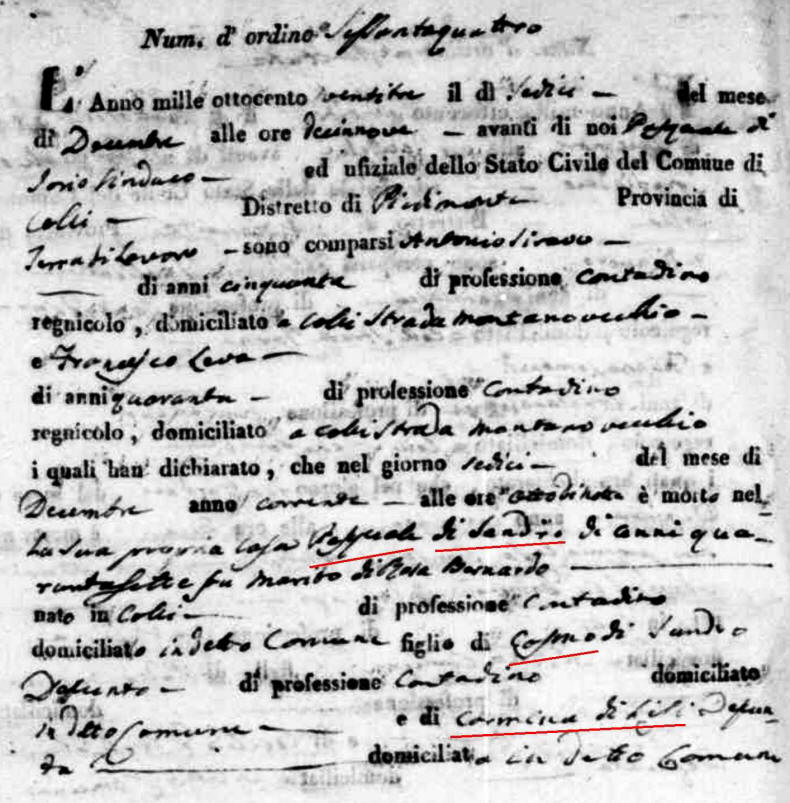 Num. d' ordine Sessantaquattro
L' Anno mille ottocento ventitre il dì Sedici - del mese
di Decembre alle ore diecinnove - avanti di noi Pasquale di
Iorio Sindaco - ed ufiziale dello Stato Civile del Comune di
Colli - Distretto di Piedimonte Provincia di
Terra di Lavoro - sono comparsi Antonio Siravo -
di anni cinquanta di professione Contadino
regnicolo, domiciliato a Colli Strada montano vecchio -
e Francesco Leva -
di anni quaranta - di professione Contadino
regnicolo, domiciliato a Colli Strada montano vecchio
i quali han dichiarato, che nel giorno sedici - del mese di
Decembre anno corrente - alle ore otto di notte è morto nel
la sua propria casa Pasquale di Sandro di anni qua-
rantasette fu marito di Rosa Bernardo
nato in Colli - di professione Contadino
domiciliato in detto Comune figlio di Cosmo di Sandro
Defunto - di professione Contadino domiciliato
in detto Comune e di Carmina di Lisi Defun
ta domiciliata in detto Comune